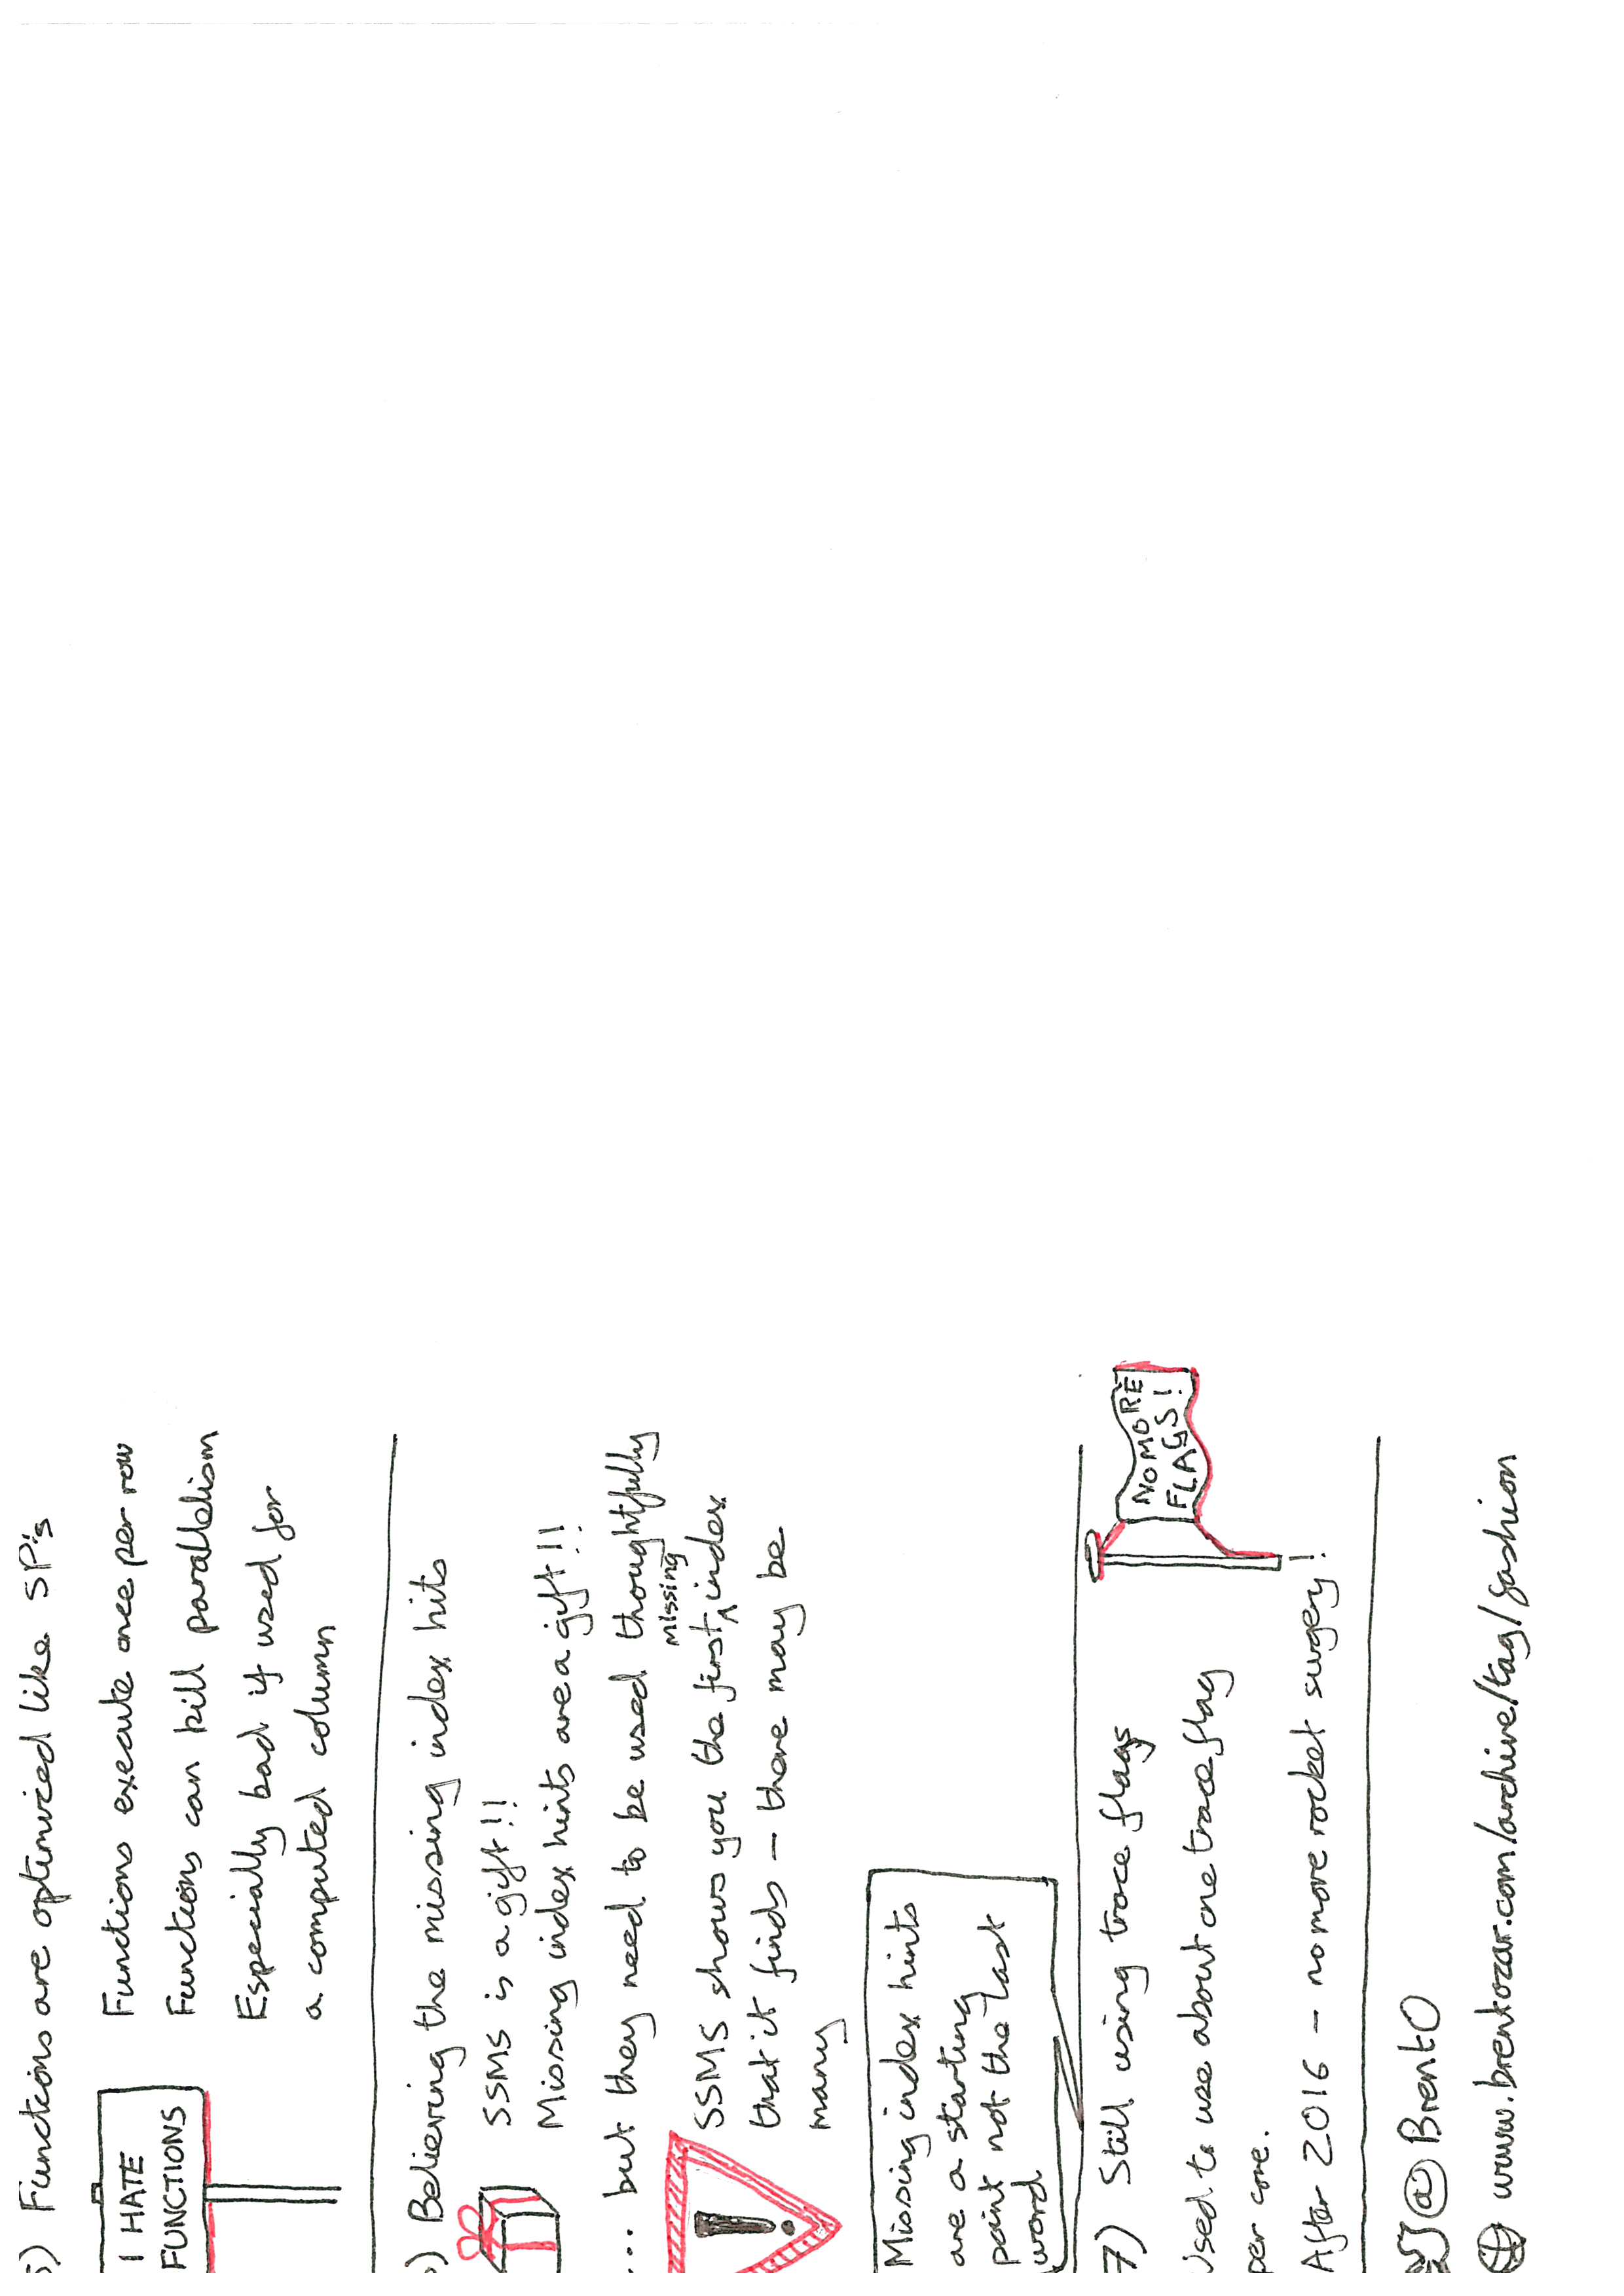 5) Functions are optimized like SP's
I HATE
FUNCTIONS
Functions execute once per row
Functions can kill parallelism
Especially bad if used for
a computed column
) Believing the missing index hits
SSMS is a gift!!
Missing index hints are a gift!!
.... but they need to be used thoughtfully
SSMS shows you the first missing index
that it finds - there may be
many
!
Missing index hints
are a starting
point not the last
word
7) Still using trace flags
NO MORE
FLAGS!
Used to use about one trace flag
per core.
After 2016 - no more rocket surgery!
@BrentO
www.brentozar.com/archive/tag/fashion